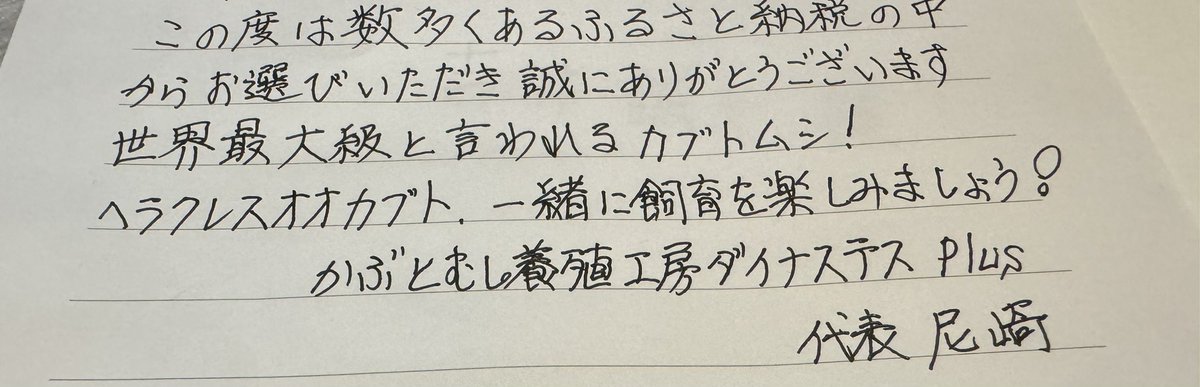 この度は数多くあるふるさと納税の中
からお選びいただき誠にありがとうございます
世界最大級と言われるカブトムシ!
ヘラクレスオオカブト、一緒に飼育を楽しみましょう!
かぶとむし養殖工房ダイナステス Plus
代表 尼崎